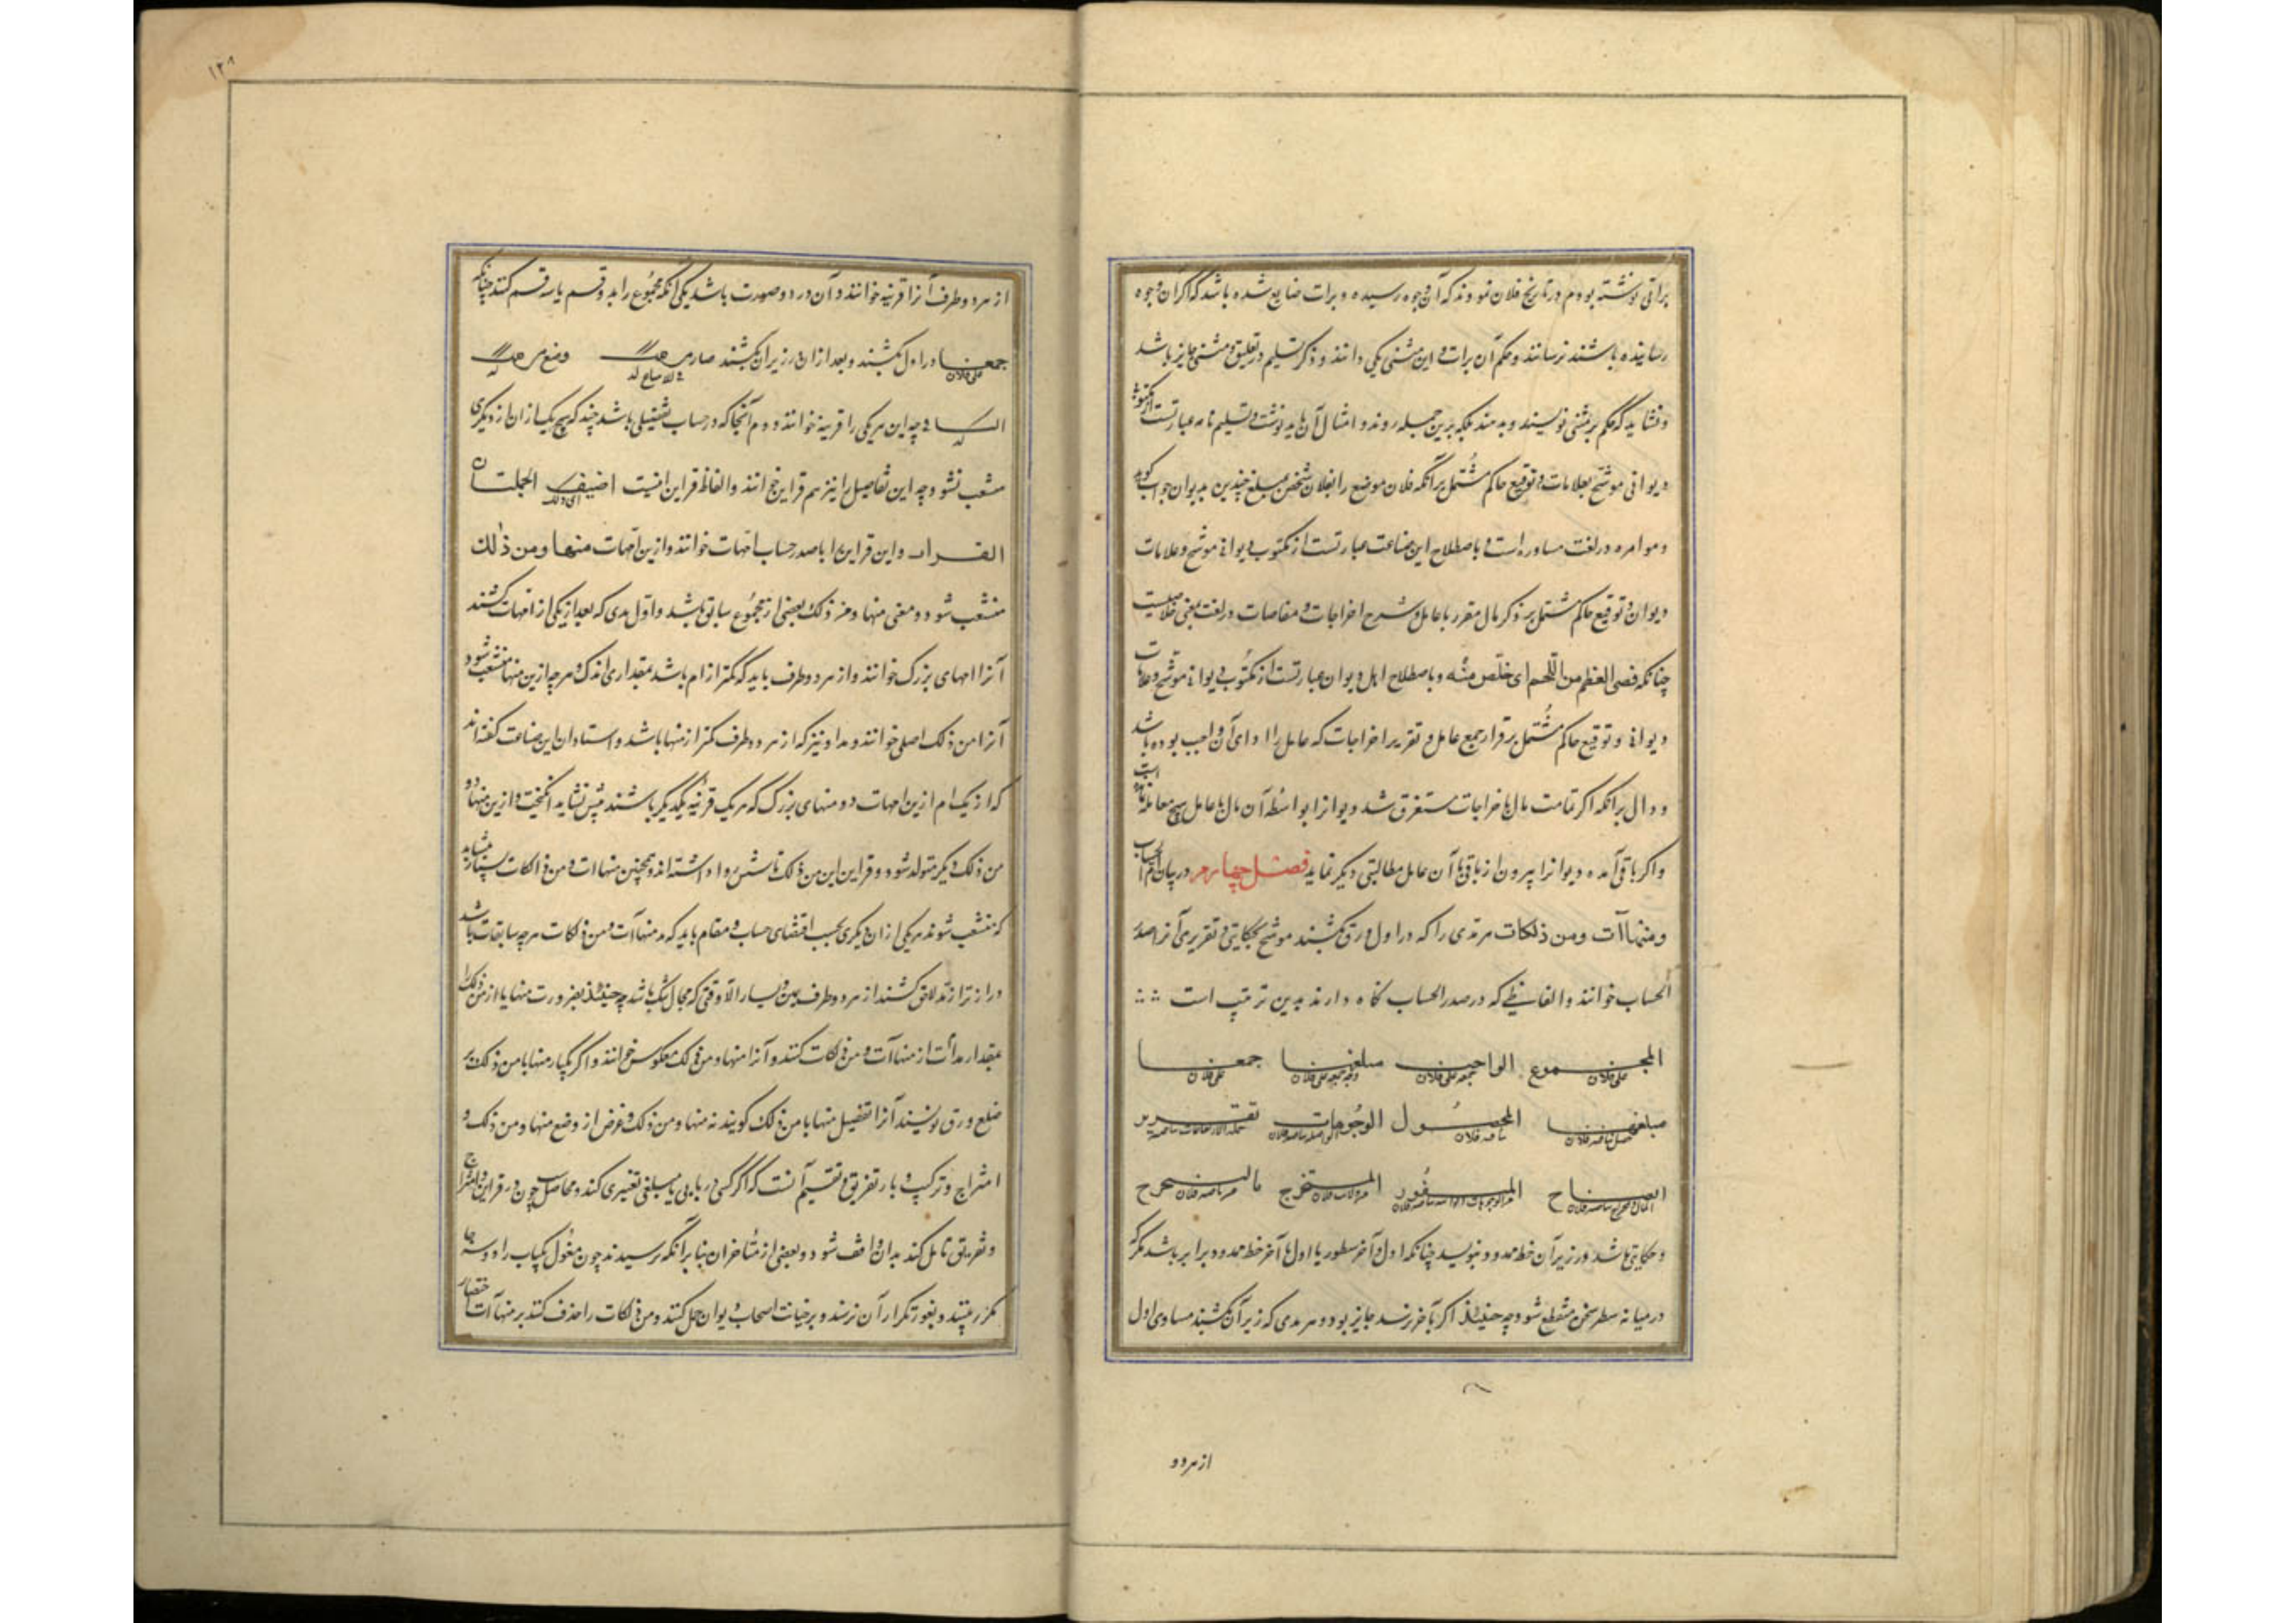 براتی نوشته بودم در تاریخ فلان نمودند که آن وجوه رسیده و برات ضایع شده باشد که اگر آن وجوه
رسانیده باشند نرسانند و حکم آن برات و این مثنی یکی دانند و ذکر تسلیم در تعلیق و مثنی جایز باشد
و نشاید که حکم بر مثنی نویسند و بدهند بلکه برین جمله روند و امثال آن باید نوشت و تسلیم نامه عبارتست از مکتوب
دیوانی موشح بعلامات و توقیع حاکم مشتمل بر آنکه فلان موضع را بفلان شخص بمبلغ چندین بدیوان جواب گوید
و موامره در لغت مشاوره است و باصطلاح این صناعت عبارتست از مکتوب دیوانی موشح و علامات
دیوان و توقیع حاکم مشتمل بر ذکر مال مقرر با عامل و شرح اخراجات و مفاصات در لغت بمعنی خلاصیست
چنانکه فصی العظم من اللحم ای خلص منه و باصطلاح اهل دیوان عبارتست از مکتوب دیوانی موشح و علامات
دیوانی و توقیع حاکم مشتمل بر قرار جمع عامل و تقریر اخراجات که عامل را ادای آن واجب بوده باشد
و دال بر آنکه اگر تمامت مال باخراجات مستغرق شد دیوانرا بواسطه آن مال با عامل هیچ معامله نمانده است
و اگر باقی آمده دیوانرا بیرون از باقی با آن عامل مطالبتی دیگر نماید فصل چهارم در بیان ام الحساب
و منهاآت و من ذلکات هر مدی را که در اول ورق بکشند موشح بحکایتی و تقریری آنرا صدر
الحساب خوانند و الفاظی که در صدر الحساب نگاه دارند بدین ترتیب است
المجموع الواجب مبلغ جمعنا
علی فلان علی فلان علی فلان علی فلان
مبلغ المحصول الوجوهات تقریر
المستخرج
و حکایتی باشد و در زیر آن خط ممدود بنویسد چنانکه اول و آخر سطور با اول و آخر خط ممدود برابر باشد مگر که
در میانه سطر سخن منقطع شود چه حینئذ اگر بآخر نرسد جایز بود و هر مدی که زیر آن کشند مساوی اول
از هر دو
۱۲۸
از هر دو طرف آنرا قرینه خوانند و آن در دو صورت باشد یکی آنکه مجموع را بدو قسم یا سه قسم کنند چنانکه
جمعنا در اول بکشند و بعد از آن در زیر آن بکشند
علی فلان
چه این هر یکی را قرینه خوانند و دوم آنجا که در حساب تفصیلی باشد چند که هیچ یک از آن از دیگری
منشعب نشود چه این تفاصیل را نیز هم قراین خوانند و الفاظ قراین اینست اضیف الجملتان
القرار و این قراین را با صدر حساب امهات خوانند و ازین امهات منها و من ذلک
منشعب شود و معنی منها و من ذلک بعضی از مجموع سابق باشد و اول مدی که بعد از یکی از امهات کشند
آنرا امهای بزرگ خوانند و از هر دو طرف باید که کمتر از ام باشد بمقداری اندک و هر چه ازین منها منشعب شود
آنرا من ذلک اصلی خوانند و مد او نیز که از هر دو طرف کمتر از منها باشد و استادان این صناعت گفته اند
که از یک ام ازین امهات دو منهای بزرگ که هر یک قرینه یکدیگر باشند بیش نشاید انگیخت و ازین منها دو
من ذلک دیگر متولد شود و قراین این من ذلک تا شش روا داشته اند و همچنین منهاات و من ذلکات بسیار شاید
که منشعب شوند هر یکی از آن دیگری بحسب اقتضای حساب و مقام باید که مد منهاآت و من ذلکات هر چه سابقات باشد
درازتر از مد لاحق کشند از هر دو طرف یمین و یسار الا وقتی که مجال تنگ باشد چه حینئذ بضرورت منها یا از من ذلک را
بمقدار مدات از منهاآت و من ذلکات کنند و آنرا منها و من ذلک معکوس خوانند و اگر یکبار منها با من ذلک بر
ضلع ورق نویسند آنرا تفصیل منها یا من ذلک گویند نه منها و من ذلک و غرض از وضع منها و من ذلک و
امتزاج و ترکیب و باز تفریق و تقسیم آنست که اگر کسی در بابی یا مبلغی تغییری کند و محاسب چون در قراین و امتزاج
و تفریق تامل کند بدان واقف شود و بعضی از متاخران بنا بر آنکه ترسیدند چون مغول یکباب را دو سه جا
مکرر بینند و بغور تکرار آن نرسند و بر خیانت اصحاب دیوان حمل کنند و من ذلکات را حذف کنند بر منهاآت اختصار